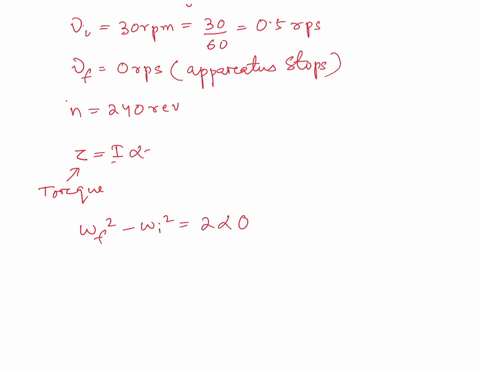 ν_i = 30rpm = 30/60 = 0.5 rps
ν_f = 0 rps (apparatus stops)
n = 240 rev
τ = I α
Torque
ω_f² - ω_i² = 2αθ